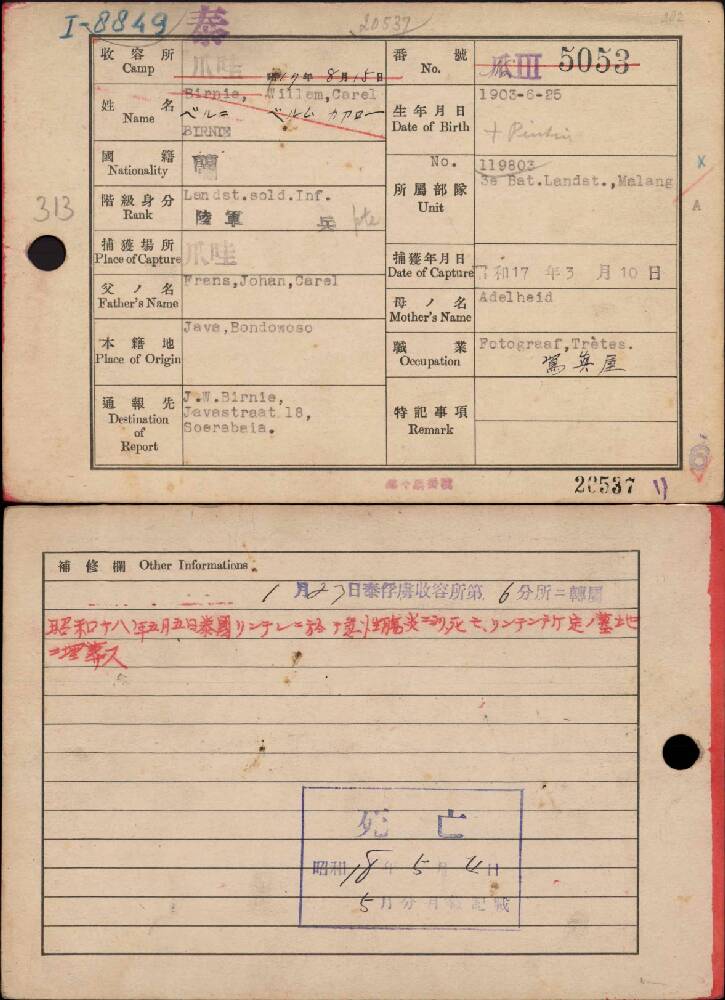 I-8849 泰 20537
收容所 Camp 爪哇 昭17年8月15日
番號 No. 爪III 5053
姓名 Name Birnie, Willem, Carel
ベルニ ベルム カアロー
BIRNIE
生年月日 Date of Birth 1903-6-25
國籍 Nationality 蘭
No. 119803
313
階級身分 Rank Landst.sold.Inf.
陸軍 兵
所屬部隊 Unit 3e Bat.Landst.,Malang
X
A
捕獲場所 Place of Capture 爪哇
捕獲年月日 Date of Capture 昭和17年3月10日
父ノ名 Father's Name Frans,Johan,Carel
母ノ名 Mother's Name Adelheid
本籍地 Place of Origin Java,Bondowoso
職業 Occupation Fotograaf,Trètes.
寫真屋
通報先 Destination of Report J.W.Birnie,
Javastraat 18,
Soerabaia.
特記事項 Remark
20537
補修欄 Other Informations
1月27日泰俘虜收容所第6分所ニ轉屬
昭和十八年五月五日泰國リンテンニ於テ急性腸炎ニヨリ死亡、リンテン所定ノ墓地
ニ埋葬ス
死亡
昭和18年5月4日
5月分月報記載